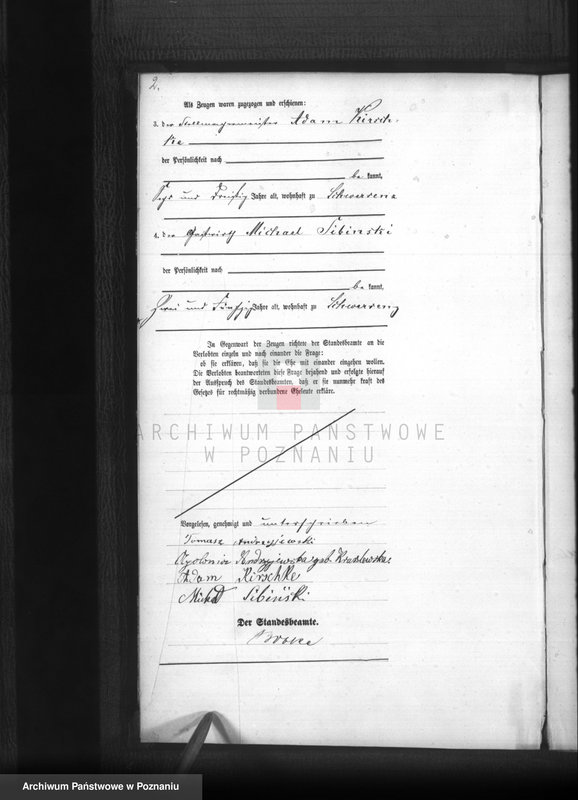 2.
Als Zeugen waren zugezogen und erschienen:
3. der Stellmachermeister Adam Kirsch-
ke
der Persönlichkeit nach
be kannt,
Sechs und Dreißig Jahre alt, wohnhaft zu Schwarzenz
4. der Gastwirth Michael Sibinski
der Persönlichkeit nach
be kannt,
Zwei und Fünfzig Jahre alt, wohnhaft zu
In Gegenwart der Zeugen richtete der Standesbeamte an die
Verlobten einzeln und nach einander die Frage:
ob sie erklären, daß sie die Ehe mit einander eingehen wollen.
Die Verlobten beantworteten diese Frage bejahend und erfolgte hierauf
der Ausspruch des Standesbeamten, daß er sie nunmehr kraft des
Gesetzes für rechtmäßig verbundene Eheleute erkläre.
ARCHIWUM PAŃSTWOWE
W POZNANIU
Vorgelesen, genehmigt und unterschrieben
Tomasz Andrzejewski
Apolonia Andrzejewska geb.
Adam Kirschke
Michał Sibiński
Der Standesbeamte.
Archiwum Państwowe w Poznaniu